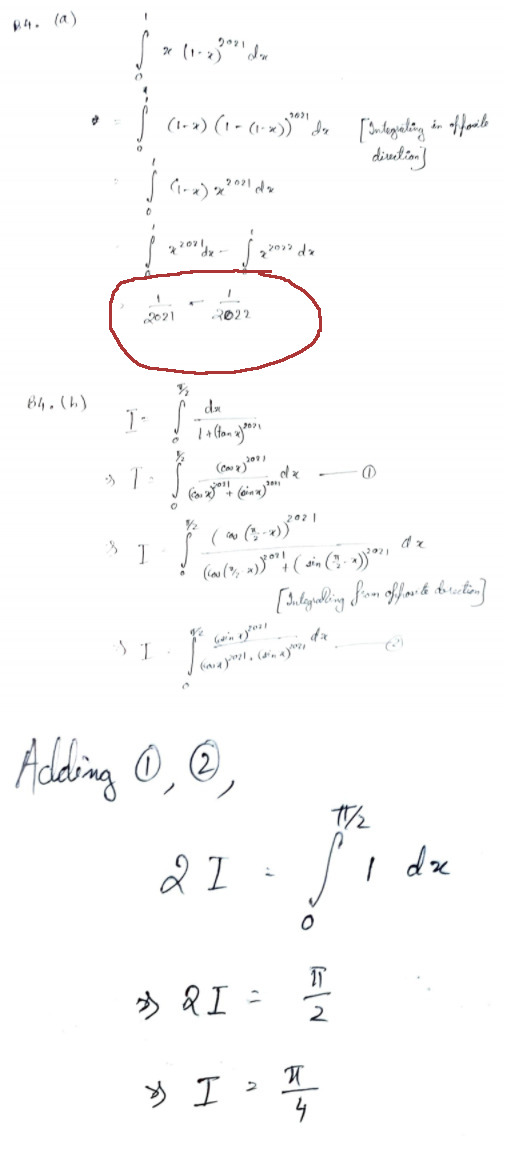 B4. (a)
∫₀¹ x (1-x)²⁰²¹ dx
= ∫₀¹ (1-x) (1-(1-x))²⁰²¹ dx [Integrating in opposite direction]
= ∫₀¹ (1-x) x²⁰²¹ dx
∫₀¹ x²⁰²¹ dx - ∫₀¹ x²⁰²² dx
1/2021 - 1/2022
B4. (b) I = ∫₀^(π/2) dx / (1+(tan x)²⁰²¹)
⇒ I = ∫₀^(π/2) (cos x)²⁰²¹ / ((cos x)²⁰²¹ + (sin x)²⁰²¹) dx — ①
⇒ I = ∫₀^(π/2) (cos(π/2 - x))²⁰²¹ / ((cos(π/2 - x))²⁰²¹ + (sin(π/2 - x))²⁰²¹) dx
[Integrating from opposite direction]
⇒ I = ∫₀^(π/2) (sin x)²⁰²¹ / ((cos x)²⁰²¹ + (sin x)²⁰²¹) dx — ②
Adding ①, ②,
2I = ∫₀^(π/2) 1 dx
⇒ 2I = π/2
⇒ I = π/4